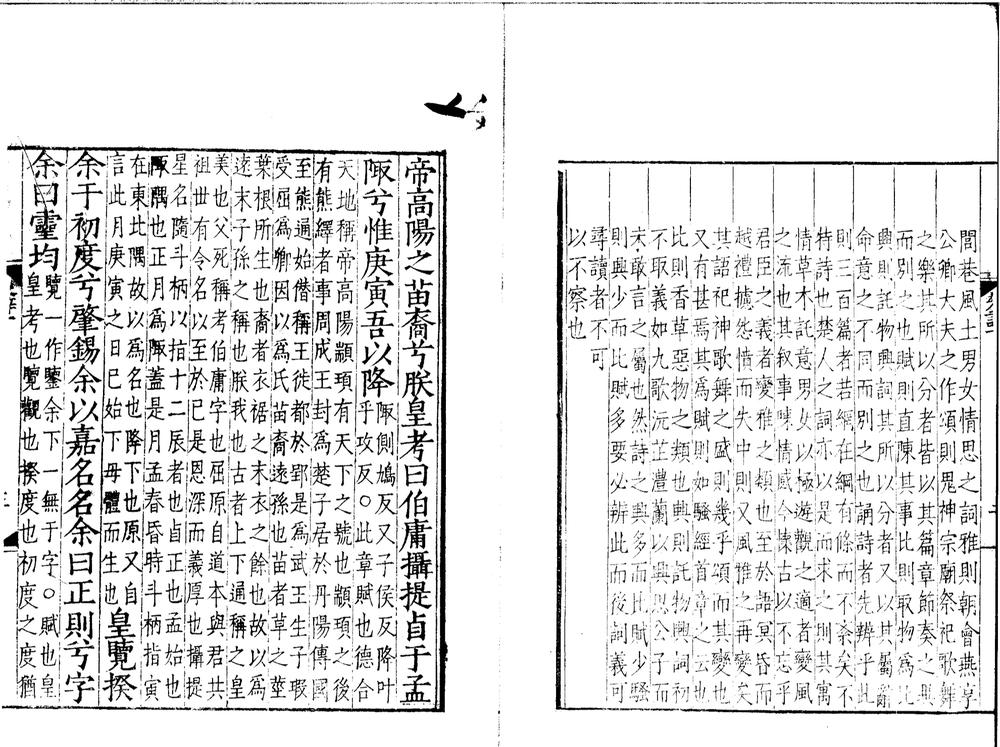 閭巷風土男女情思之詞雅則朝會燕享
公卿大夫之作頌則鬼神宗廟祭祀歌舞
之樂其所以分者皆以其篇章節奏之異
而別之也賦則直陳其事比則取物爲比
興則託物興詞其所以分者又以其屬辭
命意之不同而別之也誦詩者先辨乎此
則三百篇者若網在綱有條而不紊矣不
特詩也楚人之詞亦以是而求之則其寓
情草木託意男女以極遊觀之適者變風
之流也其叙事陳情感今懷古以不忘乎
君臣之義者變雅之類也至於語冥昏而
越禮攄怨憤而失中則又風雅之再變矣
其語祀神歌舞之盛則幾乎頌而其變也
又有甚焉其爲賦則如騷經首章之云也
比則香草惡物之類也興則託物興詞初
不取義如九歌沅芷澧蘭以興思公子而
未敢言之屬也然詩之興多而比賦少騷
則興少而比賦多要必辨此而後詞義可
尋讀者不可
以不察也
帝高陽之苗裔兮朕皇考曰伯庸攝提貞于孟
陬兮惟庚寅吾以降
陬側鳩反又子侯反降叶
乎攻反○此章賦也德合
天地稱帝高陽顓頊有天下之號也顓頊之後
有熊繹者事周成王封爲楚子居於丹陽傳國
至熊通始僭稱王徙都於郢是爲武王生子瑕
受屈爲卿因以爲氏苗裔遠孫也苗者草之莖
葉根所生也裔者衣裾之末衣之餘也故以爲
遠末子孫之稱也朕我也古者上下通稱之皇
美也父死稱考伯庸字也屈原自道本與君共
祖世有令名以至於已是恩深而義厚也攝提
星名隨斗柄以指十二辰者也貞正也孟始也
陬隅也正月爲陬蓋是月孟春昏時斗柄指寅
在東北隅故以爲名也降下也原又自
言此月庚寅之日已始下母體而生也
皇覽揆
余于初度兮肇錫余以嘉名名余曰正則兮字
余曰靈均
覽一作鑒余下一無于字○賦也皇
皇考也覽觀也揆度也初度之度猶